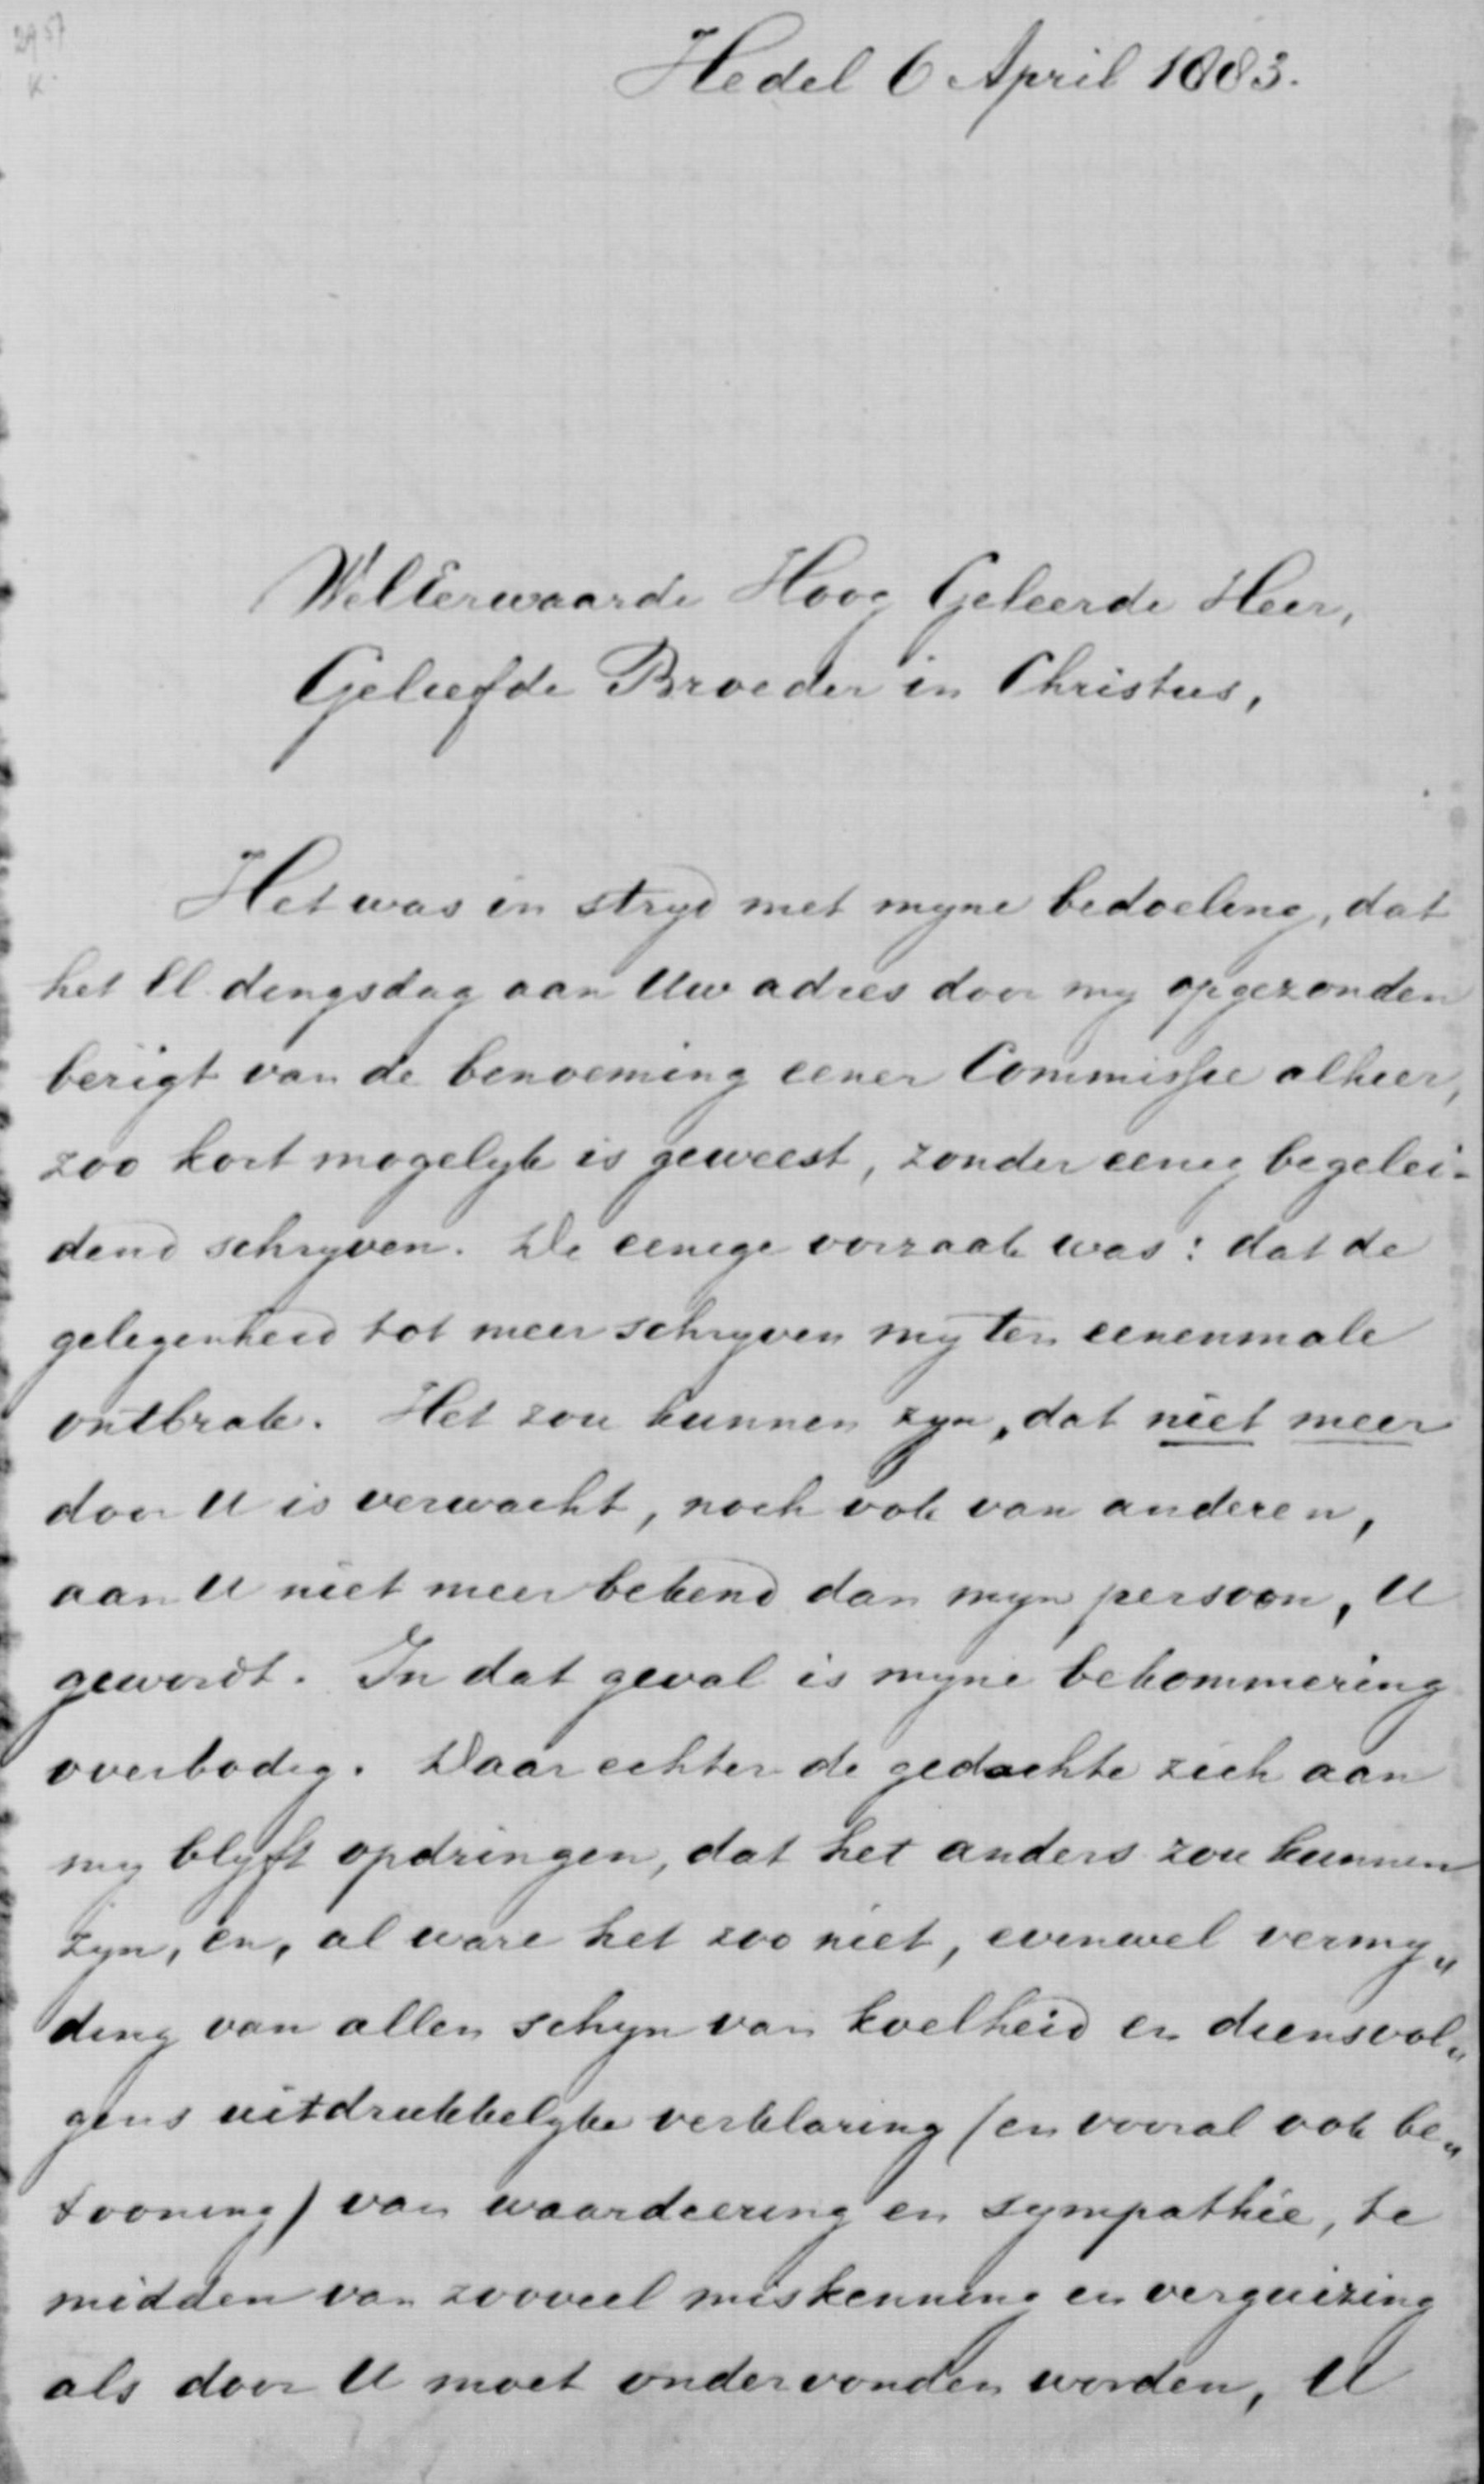 2957
K.
Hedel 6 April 1883.
WelEerwaarde Hoog Geleerde Heer,
Geliefde Broeder in Christus,
Het was in stryd met myne bedoeling, dat
het ll. dingsdag aan Uw adres door my opgezonden
berigt van de benoeming eener Commissie alhier,
zoo kort mogelyk is geweest, zonder eenig begelei-
dend schryven. De eenige oorzaak was: dat de
gelegenheid tot meer schryven my ten eenenmale
ontbrak. Het zou kunnen zyn, dat niet meer
door U is verwacht, noch ook van anderen,
aan U niet meer bekend dan myn persoon, U
gewordt. In dat geval is myne bekommering
overbodig. Daar echter de gedachte zich aan
my blyft opdringen, dat het anders zou kunnen
zyn, en, al ware het zoo niet, evenwel vermy„
ding van allen schyn van koelheid en diensvol„
gens uitdrukkelyke verklaring (en vooral ook be„
tooning) van waardeering en sympathie, te
midden van zooveel miskenning en verguizing
als door U moet ondervonden worden, U